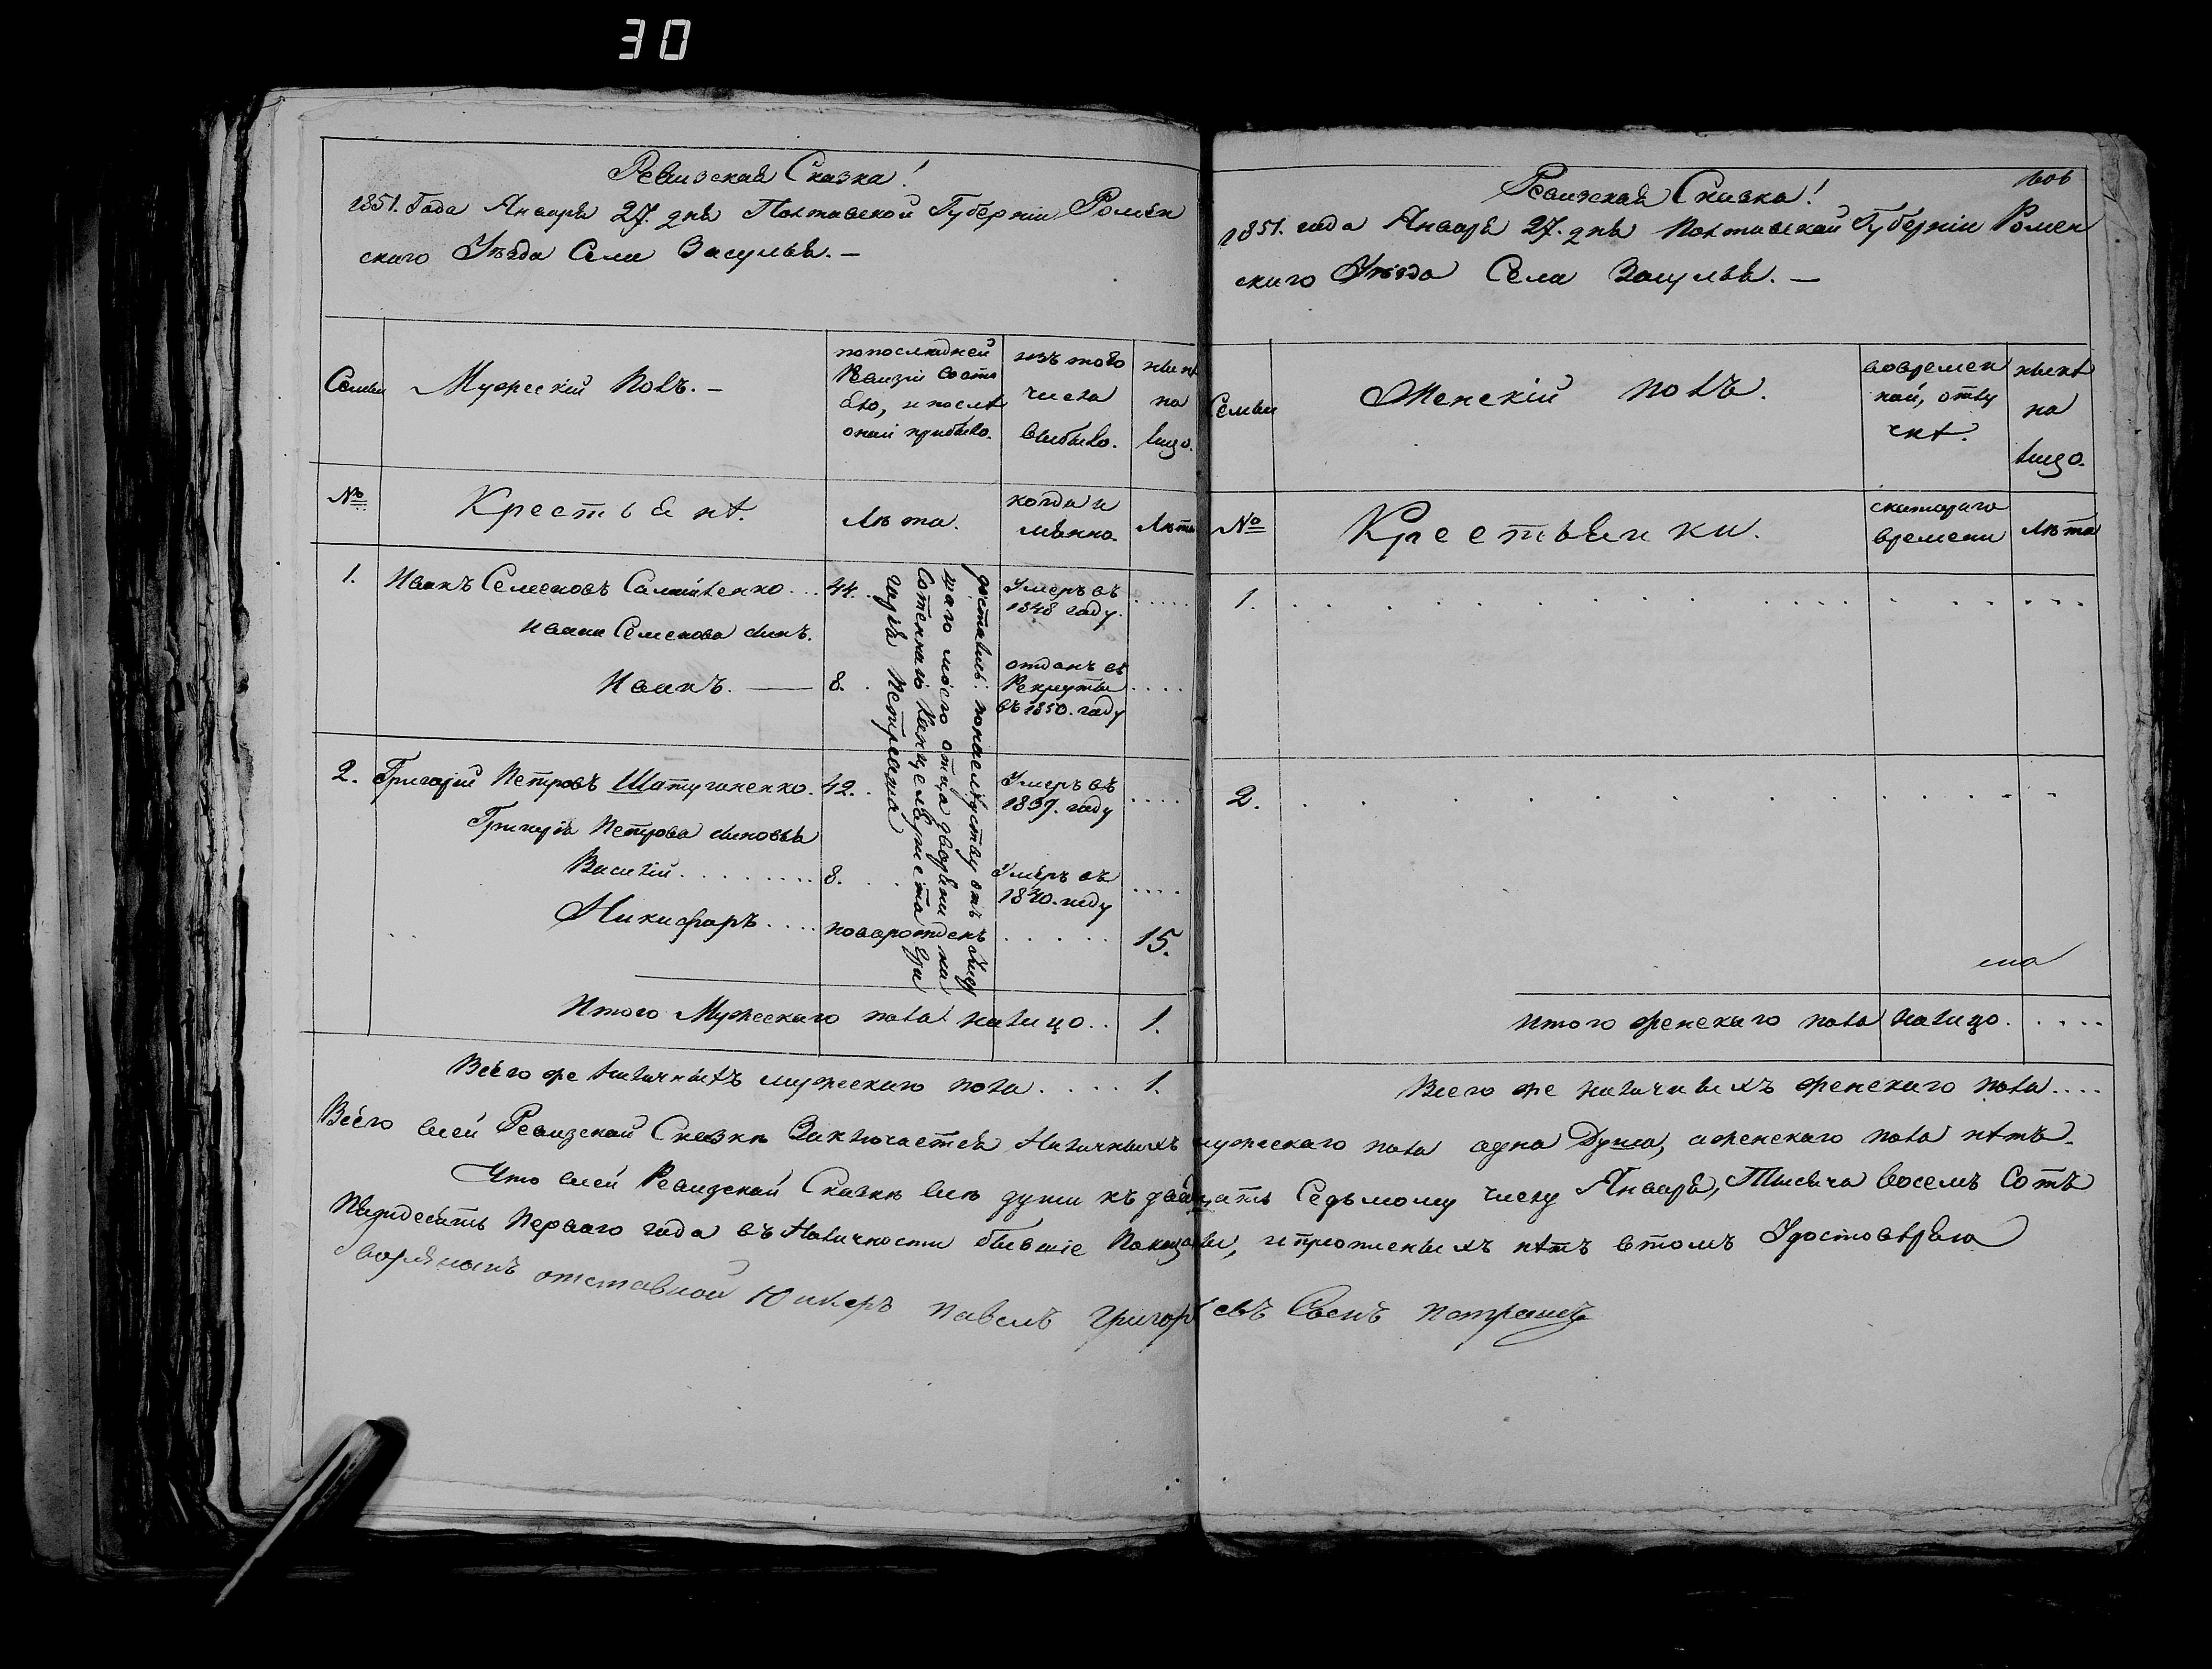 30
Ревизская Сказка!
1851. Года Января 27. дня Полтавской Губерніи Ромен
скаго Уѣзда Села Засулья. —
Семьи
Мужескій Полъ. —
попослѣдней
Ревизіи состо
яло, и послѣ
оной прибыло.
изъ того
числа
выбыло.
нынѣ
на
лицо.
№
Крестьянѣ.
Лѣта.
когда и
мѣнно.
Лѣта
1. Иванъ Семеновъ ... 44.
Умеръ въ
1848 году.
Ивана Семенова сынъ.
Иванъ. — 8.
отданъ въ
Рекруты
въ 1850. году
2. Григорій Петровъ Шатугиненко. 42.
Умеръ въ
1837. году
Григорія Петрова сыновья
Василій . . . . . . . . 8.
Умеръ въ
1840. году
Никифоръ . . . . новорожденъ . . . . . 15.
достались: понаслѣдству отъ
моего отца дворянина
Петраша
Итого Мужескаго пола налицо. . 1.
Всего же наличныхъ мужескаго пола . . . . 1.
Ревизская Сказка!
1851. года Января 27. дня Полтавской Губерніи Ромен
скаго Уѣзда Села Засулья. —
Семьи
Женскій полъ.
вовремен
ной, отлу
чкѣ.
нынѣ
на
лицо.
№
Крестьянки.
скотораго
времени
Лѣта
1. . . . . . . . . . .
2. . . . . . . . . . .
Итого женскаго пола налицо. . . . .
Всего же наличныхъ женскаго пола . . . .
Всего всей Ревизской Сказкѣ Заключается Наличныхъ мужескаго пола одна Душа, аженскаго пола нѣтъ.
Что всей Ревизской Сказкѣ всѣ души къ двадцать Седьмому числу Января, Тысяча восемъ Сотъ
Пядидесять Перваго года въ Наличности бывшіе Показаны, ипрописныхъ нѣтъ втомъ Удостовѣряю
Дворянинъ отставной Юнкеръ Павелъ Григорьевъ Сынъ Петрашъ